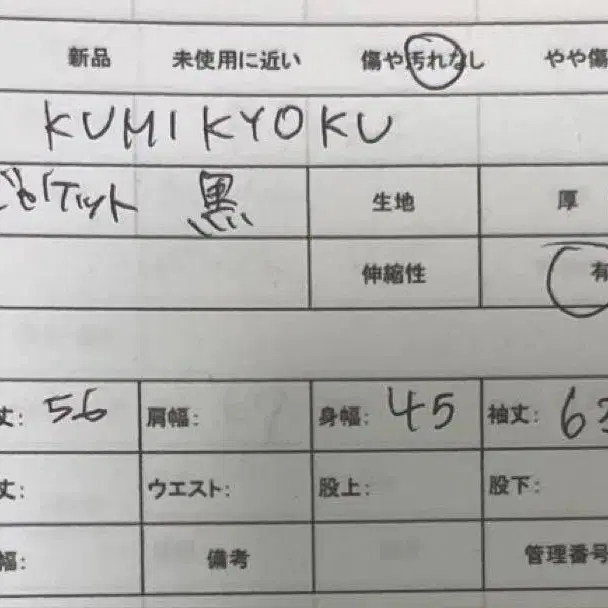 新品 未使用に近い 傷や汚れなし やや傷
KUMIKYOKU
黒 生地 厚
伸縮性 有
丈: 56 肩幅: 身幅: 45 袖丈: 63
丈: ウエスト: 股上: 股下:
幅: 備考 管理番号